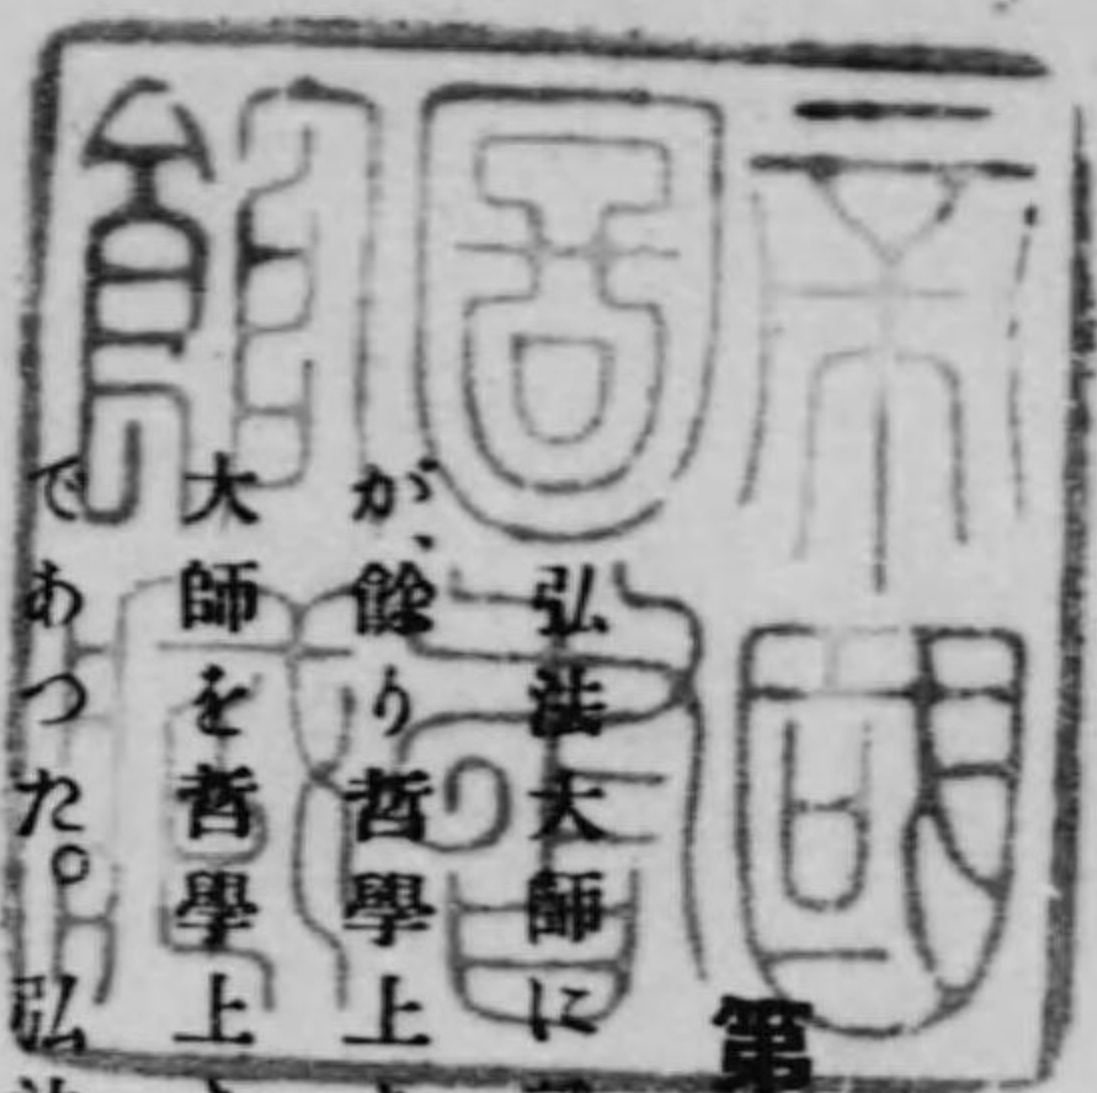 帝國
圖書
館藏
第
弘法大師に
が、餘り哲學上
大師を哲學上
であつた。弘